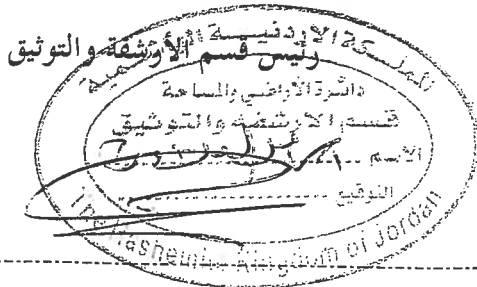 رئيس قسم الأرشفة والتوثيق
المملكة الأردنية الهاشمية
دائرة الأراضي والمساحة
قسم الأرشفة والتوثيق
الاسم
التوقيع
The Hashemite Kingdom of Jordan